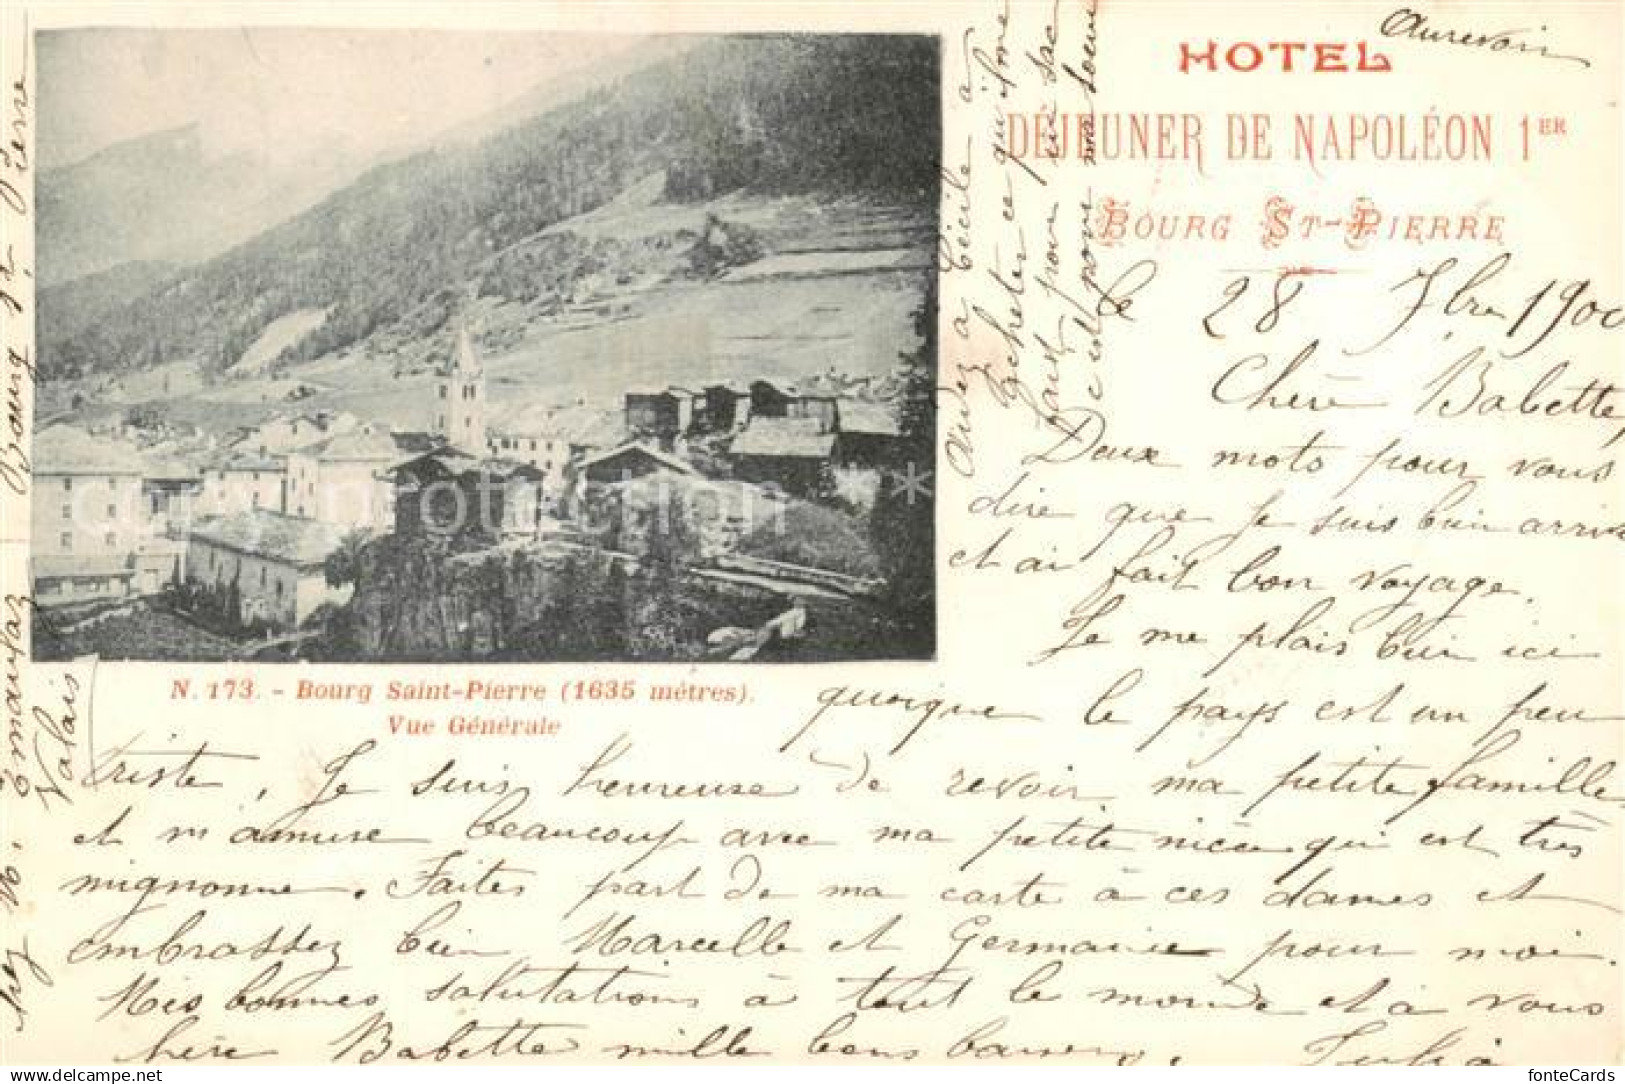 Aurevoir
HOTEL
DÉJEUNER DE NAPOLÉON 1ER
BOURG ST-PIERRE
le 28 7bre 1900
Chère Babette,
Deux mots pour vous
dire que je suis bien arrivée
et ai fait bon voyage.
Je me plais bien ici
quoique le pays est un peu
triste, Je suis heureuse de revoir ma petite famille
et m'amuse beaucoup avec ma petite nièce qui est très
mignonne. Faites part de ma carte à ces dames et
embrassez bien Marcelle et Germaine pour moi.
Mes bonnes salutations à tout le monde et à vous
chère Babette mille bons baisers.
N. 173. - Bourg Saint-Pierre (1635 mètres).
Vue Générale
chez M. Bourg St Pierre
Valais
Aidez a Cécile à
acheter ce qu'il me
faut pour un sac
c'est pour ma soeur
card protection *
fonteCards